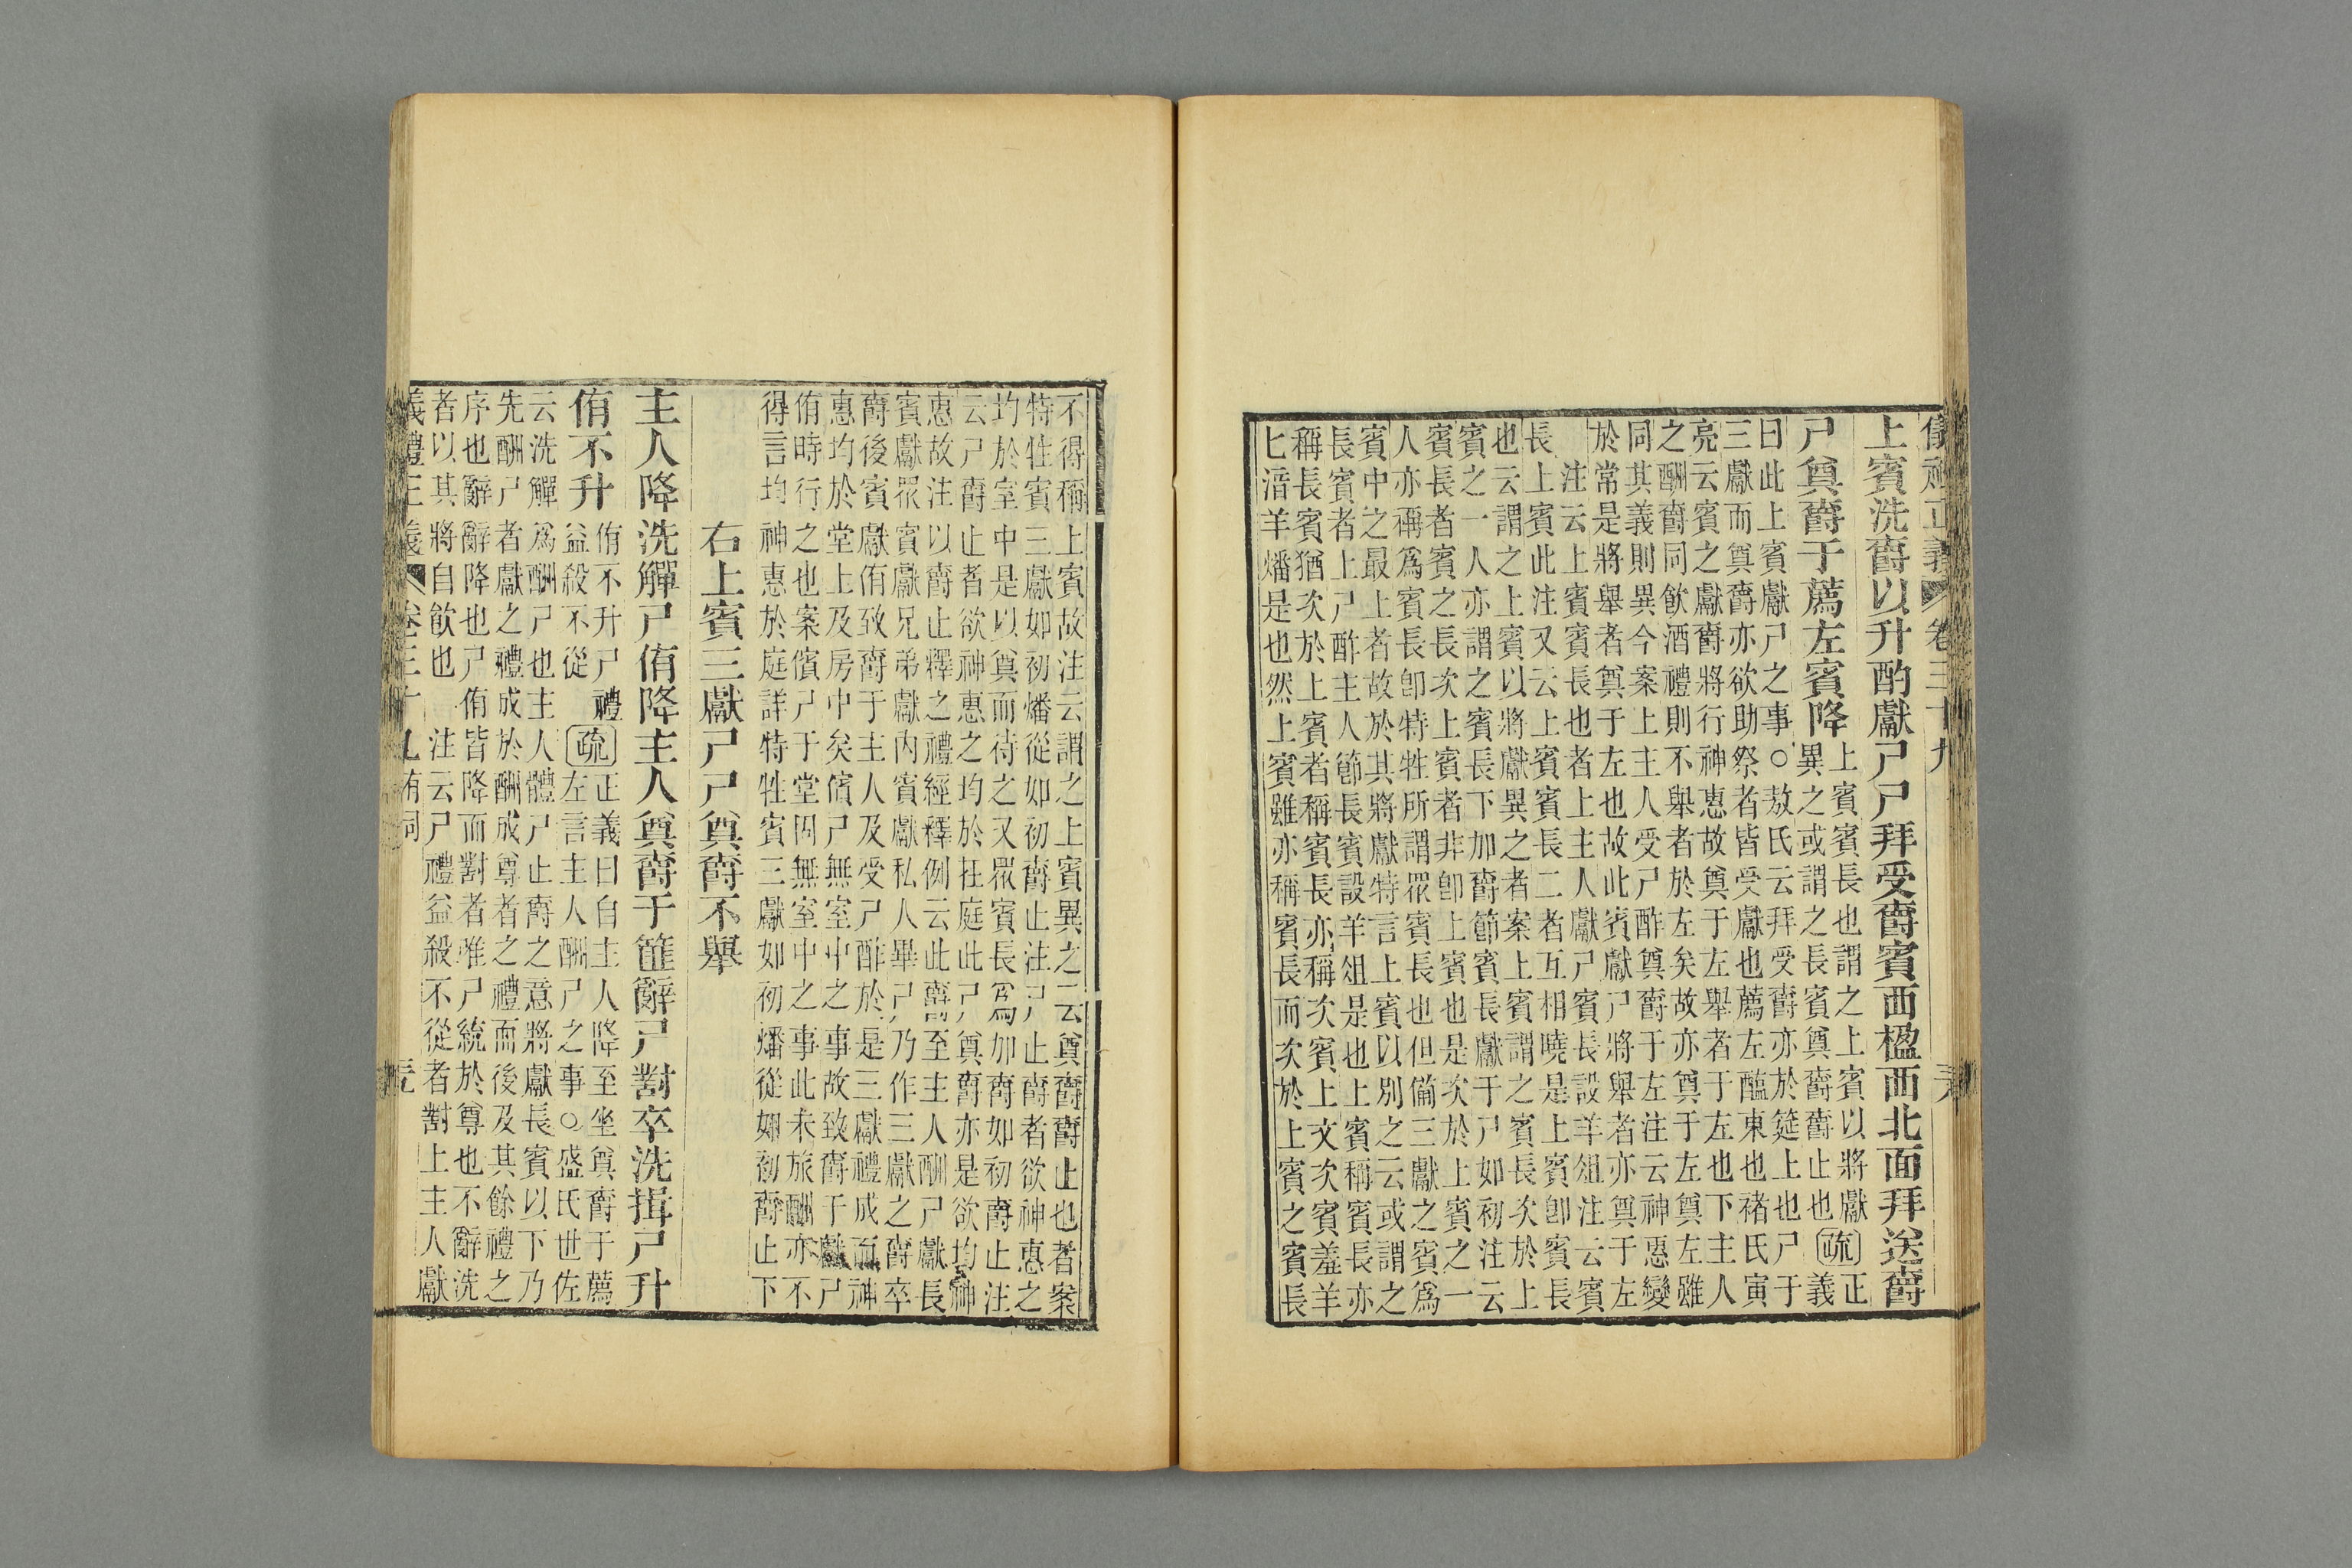 儀禮正義 卷三十九
上賓洗爵以升酌獻尸尸拜受爵賓西楹西北面拜送爵
尸奠爵于薦左賓降 上賓賓長也謂之上賓以將獻
異之或謂之長賓奠爵爵止也 疏 正
義
曰此上賓獻尸之事○敖氏云拜受爵亦於筵上也尸于
三獻而奠爵亦欲助祭者皆受獻也薦左醢東也褚氏寅
亮云賓之獻爵將行神惠故奠于左舉者于左也下主人
之酬爵同飲酒禮則不舉者於左矣故亦奠于左奠左雖
同其義則異今案上主人受尸酢奠爵于左注云神惠變
於常是將舉者奠于左也故此賓獻尸將舉者亦奠于左
注云上賓賓長也者上主人獻尸賓長設羊俎注云賓
長上賓此注又云上賓賓長二者互相曉是上賓卽賓長
也云謂之上賓以將獻異之者案上賓謂之賓長次於上
賓之一人亦謂之賓長下加爵節賓長獻于尸如初注云
賓長者賓之長次上賓者非卽上賓也是次於上賓之一
人亦稱爲賓長卽特牲所謂眾賓長也但備三獻之賓爲
賓中之最上者故於其將獻特言上賓以別之云或謂之
長賓者上尸酢主人節長賓設羊俎是也上賓稱賓長亦
稱長賓猶次於上賓者稱賓長亦稱次賓上文次賓羞羊
匕湆羊燔是也然上賓雖亦稱賓長而次於上賓之賓長
不得稱上賓故注云謂之上賓異之云奠爵爵止也者案
特牲賓三獻如初燔從如初爵止注尸止爵者欲神惠之
均於室中是以奠而待之又眾賓長爲加爵如初爵止注
云尸爵止者欲神惠之均於在庭此尸奠爵亦是欲均神
惠故注以爵止釋之禮經釋例云此爵至主人酬尸獻長
賓獻眾賓獻兄弟獻內賓獻私人畢尸乃作三獻之爵卒
爵後賓獻侑致爵于主人及受尸酢於是三獻禮成而神
惠均於堂上及房中矣儐尸無室中之事故致爵于獻尸
侑時行之也案儐尸于堂因無室中之事此未旅酬亦不
得言均神惠於庭詳特牲賓三獻如初燔從如初爵止下
右上賓三獻尸尸奠爵不舉
主人降洗觶尸侑降主人奠爵于篚辭尸對卒洗揖尸升
侑不升 侑不升尸禮
益殺不從 疏 正義曰自主人降至坐奠爵于薦
左言主人酬尸之事○盛氏世佐
云洗觶爲酬尸也主人體尸止爵之意將獻長賓以下乃
先酬尸者獻之禮成於酬成尊者之禮而後及其餘禮之
序也辭辭降也尸侑皆降而對者唯尸統於尊也不辭洗
者以其將自飲也 注云尸禮益殺不從者對上主人獻
義禮正義 卷三十九 有司